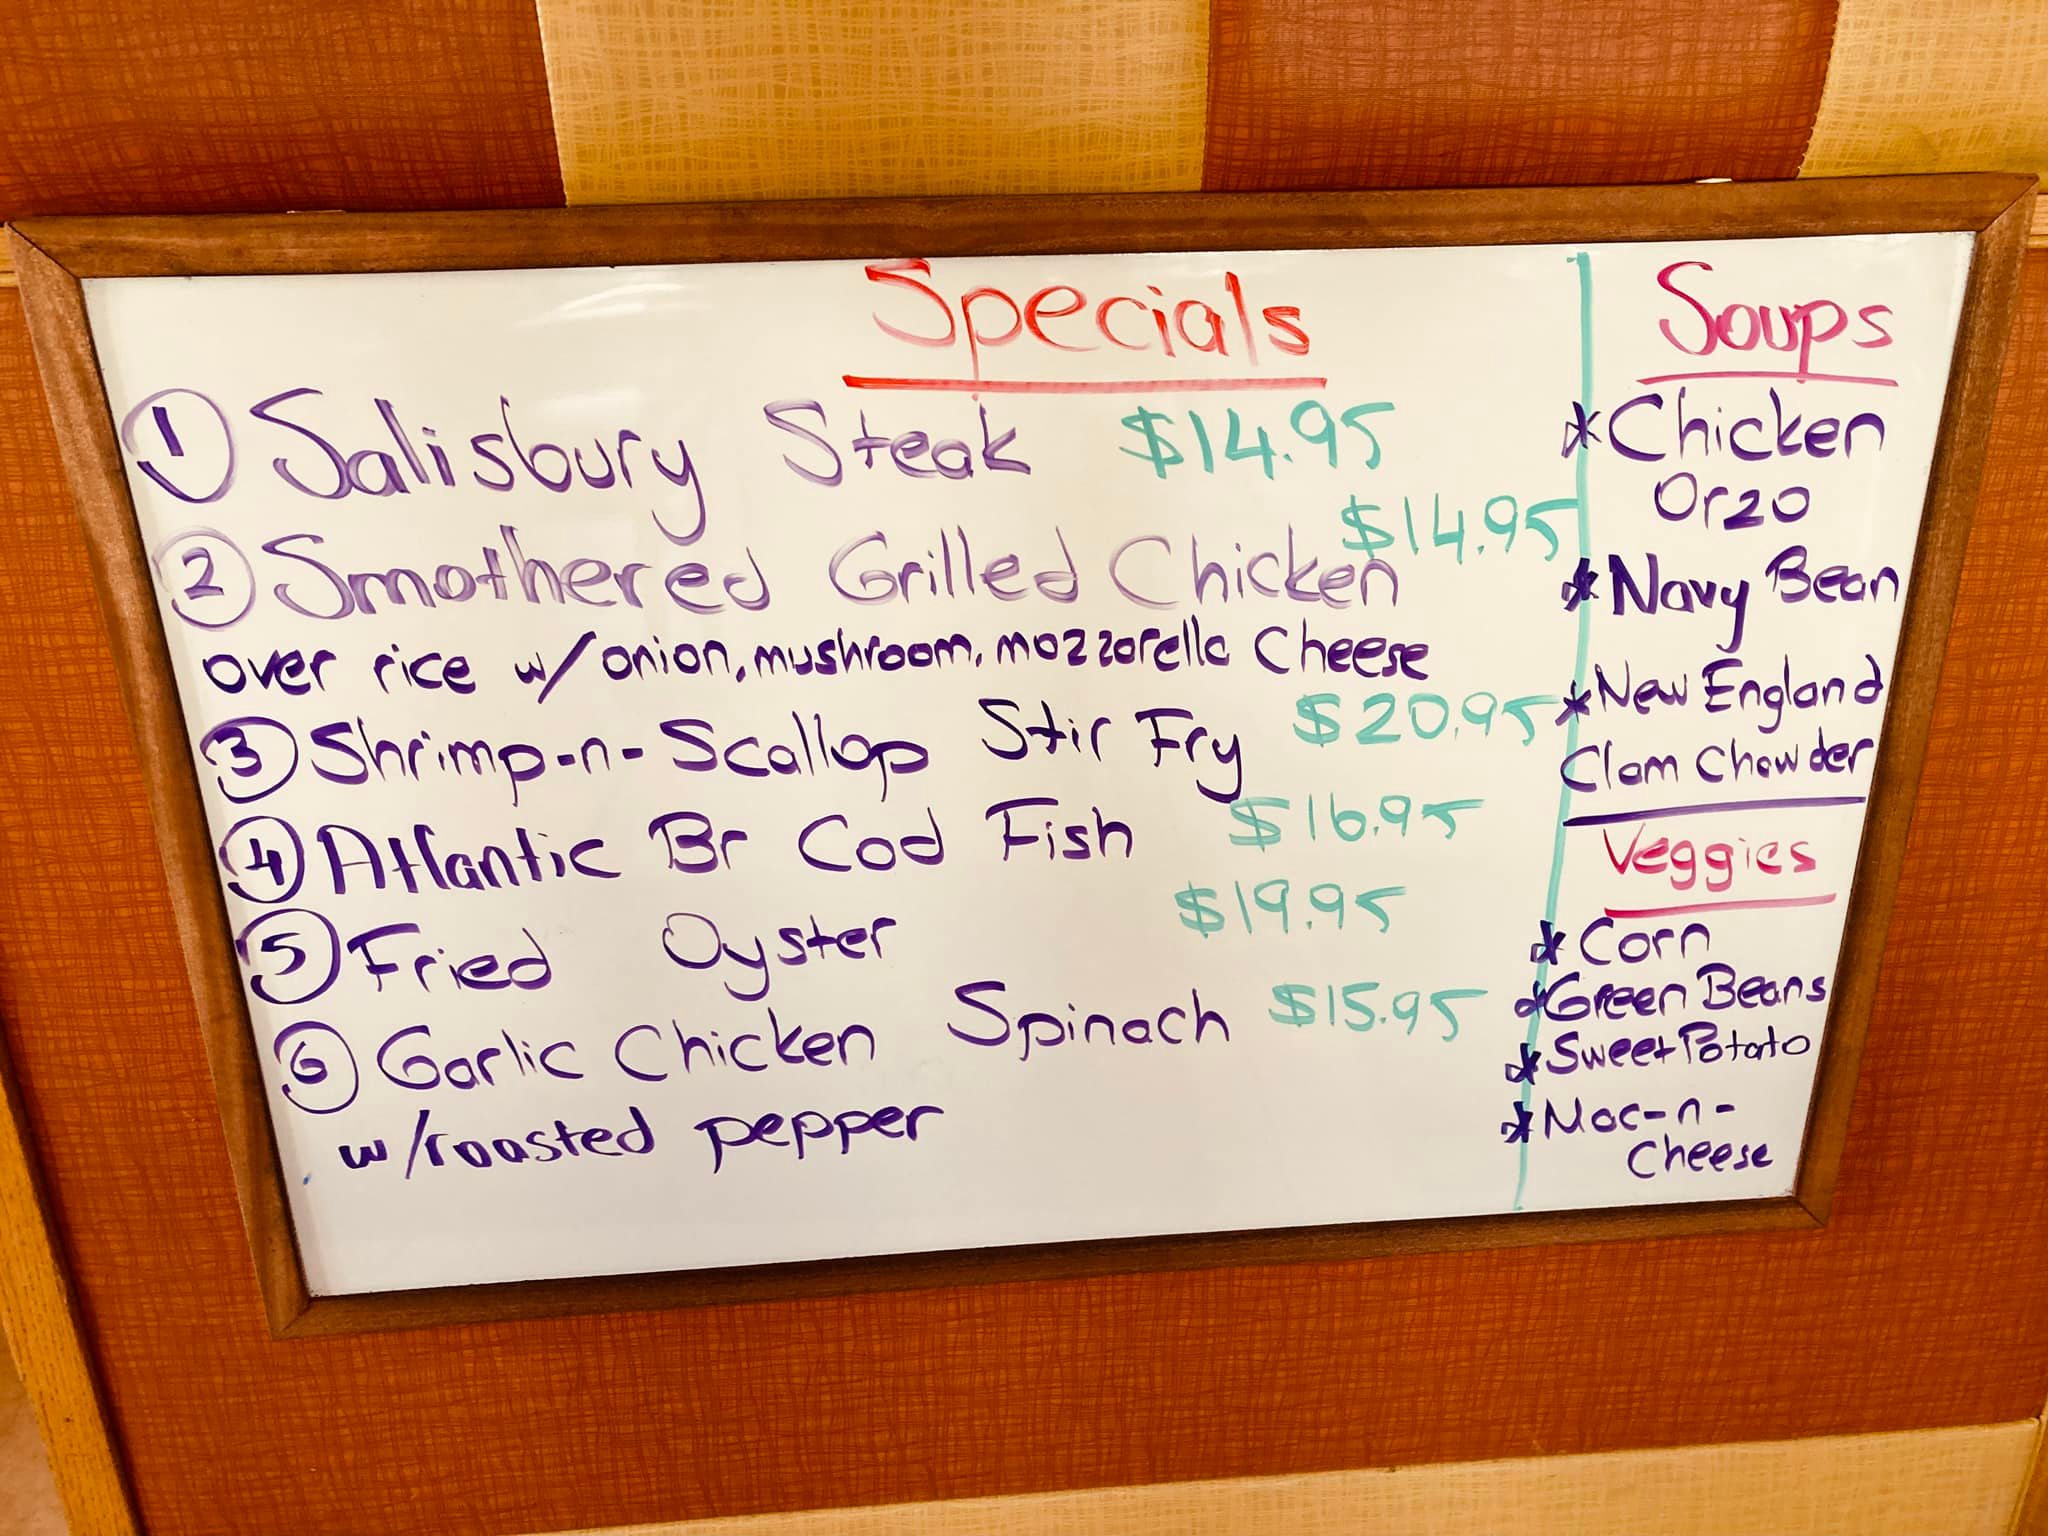 Specials
① Salisbury Steak $14.95
② Smothered Grilled Chicken $14.95
over rice w/onion, mushroom, mozzarella Cheese
③ Shrimp-n-Scallop Stir Fry $20.95
④ Atlantic Br Cod Fish $16.95
⑤ Fried Oyster $19.95
⑥ Garlic Chicken Spinach $15.95
w/roasted pepper
Soups
* Chicken
Orzo
* Navy Bean
* New England
Clam Chowder
Veggies
* Corn
* Green Beans
* Sweet Potato
* Mac-n-
Cheese